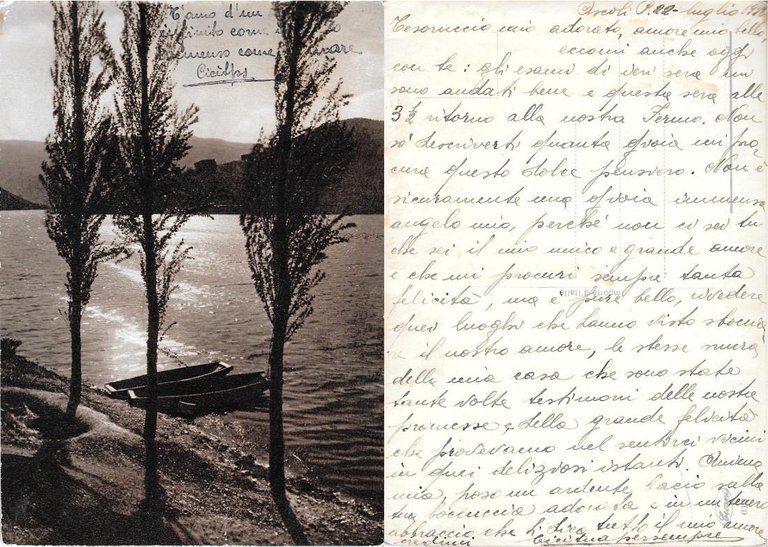 T'amo d'un
infinito come
immenso come mare
Ascoli P. 22 - luglio
Tesoruccio mio adorato, amore mio bello,
eccomi anche oggi
con te: gli esami di ieri sera
sono andati bene e questa sera alle
3 1/2 ritorno alla nostra Fermo. Non
so' descriverti quanta gioia mi pro
cura questo dolce pensiero. Non è
sicuramente una gioia immensa
angelo mio, perché non ci sei tu
che sei il mio unico e grande amore
e che mi procuri sempre tanta
felicità, ma è pure bello, rivedere
quei luoghi che hanno visto sboccia
re il nostro amore, le stesse mura
della mia casa che sono state
tante volte testimoni delle nostre
promesse e della grande felicità
che provavamo nel sentirci vicini
in quei deliziosi istanti. Anima
mia, poso un ardente bacio sulla
tua boccuccia adorata e in un tenero
abbraccio che ti dica tutto il mio amore
per sempre